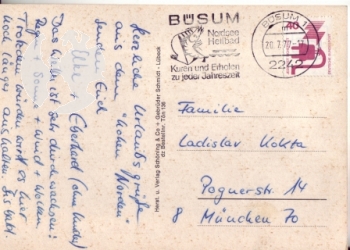 Herzliche Urlaubsgrüße
aus dem "hohen Norden"
senden Euch
Eberhard (ohne Kinder)
Das Wetter ist sehr durchwachsen!
Regen + Sonne + Wind + Wolken
Trotzdem würden wir es hier
noch länger aushalten. Bis bald
Herst. u. Verlag Schöning & Co + Gebrüder Schmidt · Lübeck
BÜSUM
Nordsee
Heilbad
Kuren und Erholen
zu jeder Jahreszeit
BÜSUM 1
20.7.77
2242
40
Familie
Ladislav Kokta
Pognerstr 14
8 München 70